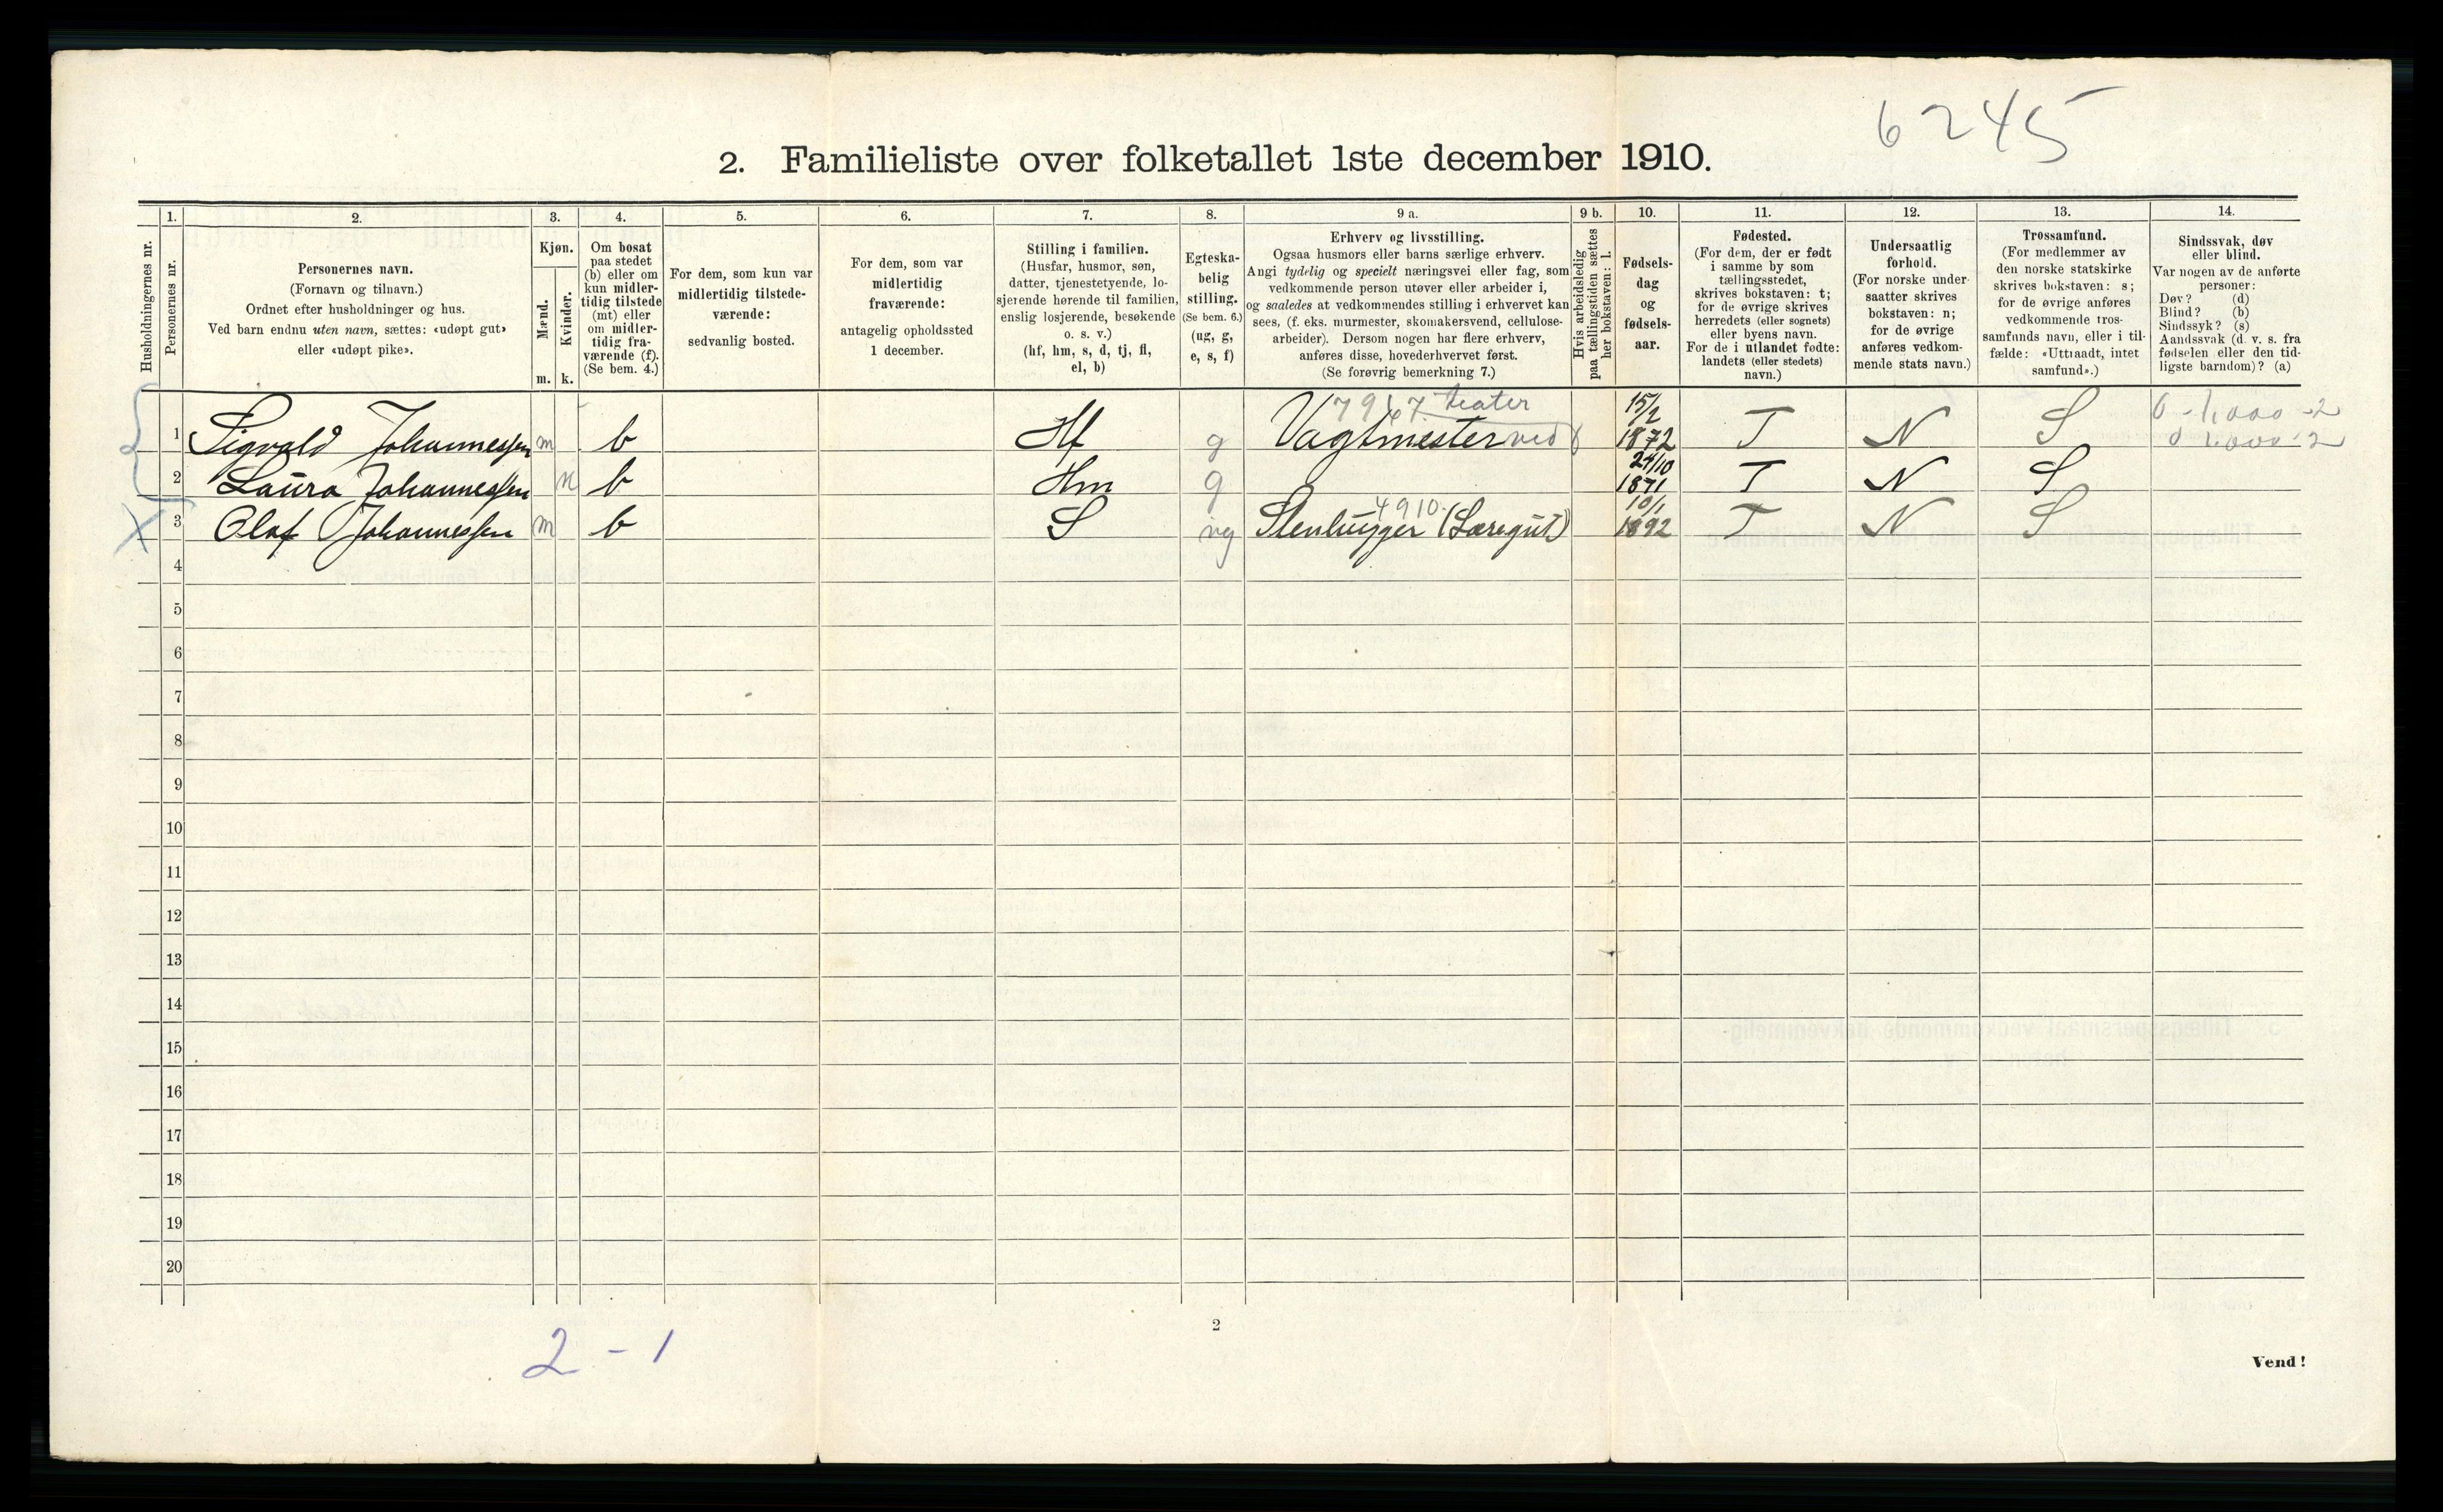 6245
2. Familieliste over folketallet 1ste december 1910.
Husholdningernes nr.
1.
Personernes nr.
2.
Personernes navn.
(Fornavn og tilnavn.)
Ordnet efter husholdninger og hus.
Ved barn endnu uten navn, sættes: «udøpt gut»
eller «udøpt pike».
3.
Kjøn.
Mænd.
Kvinder.
m. k.
4.
Om bosat
paa stedet
(b) eller om
kun midler-
tidig tilstede
(mt) eller
om midler-
tidig fra-
værende (f).
(Se bem. 4.)
5.
For dem, som kun var
midlertidig tilstede-
værende:
sedvanlig bosted.
6.
For dem, som var
midlertidig
fraværende:
antagelig opholdssted
1 december.
7.
Stilling i familien.
(Husfar, husmor, søn,
datter, tjenestetyende, lo-
sjerende hørende til familien,
enslig losjerende, besøkende
o. s. v.)
(hf, hm, s, d, tj, fl,
el, b)
8.
Egteska-
belig
stilling.
(Se bem. 6.)
(ug, g,
e, s, f)
9 a.
Erhverv og livsstilling.
Ogsaa husmors eller barns særlige erhverv.
Angi tydelig og specielt næringsvei eller fag, som
vedkommende person utøver eller arbeider i,
og saaledes at vedkommendes stilling i erhvervet kan
sees, (f. eks. murmester, skomakersvend, cellulose-
arbeider). Dersom nogen har flere erhverv,
anføres disse, hovederhvervet først.
(Se forøvrig bemerkning 7.)
9 b.
Hvis arbeidsledig
paa tællingstiden sættes
her bokstaven: l.
10.
Fødsels-
dag
og
fødsels-
aar.
11.
Fødested.
(For dem, der er født
i samme by som
tællingsstedet,
skrives bokstaven: t;
for de øvrige skrives
herredets (eller sognets)
eller byens navn.
For de i utlandet fødte:
landets (eller stedets)
navn.)
12.
Undersaatlig
forhold.
(For norske under-
saatter skrives
bokstaven: n;
for de øvrige
anføres vedkom-
mende stats navn.)
13.
Trossamfund.
(For medlemmer av
den norske statskirke
skrives bokstaven: s;
for de øvrige anføres
vedkommende tros-
samfunds navn, eller i til-
fælde: «Uttraadt, intet
samfund».)
14.
Sindssvak, døv
eller blind.
Var nogen av de anførte
personer:
Døv? (d)
Blind? (b)
Sindssyk? (s)
Aandssvak (d. v. s. fra
fødselen eller den tid-
ligste barndom)? (a)
7967 teater 15/2 0-1,000-2
1 Sigvald Johannessen m b Hf g Vagtmester ved 1872 T N S 0 1.000-2
24/10
2 Laura Johannessen k b Hm g 1871 T N S
4910. 10/1
3 Olaf Johannessen m b S ug Stenhugger (Læregut) 1892 T N S
4
5
6
7
8
9
10
11
12
13
14
15
16
17
18
19
20
2
2 - 1
Vend!